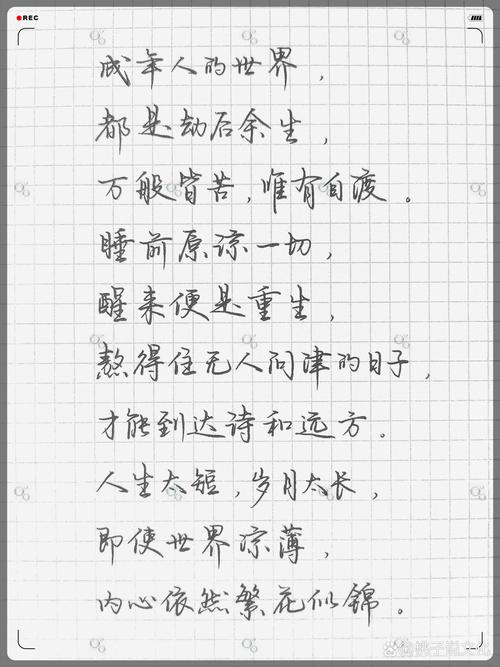 REC
成年人的世界，
都是劫后余生，
万般皆苦，唯有自渡。
睡前原谅一切，
醒来便是重生，
熬得住无人问津的日子，
才能到达诗和远方。
人生太短，岁月太长，
即使世界凉薄，
内心依然繁花似锦。